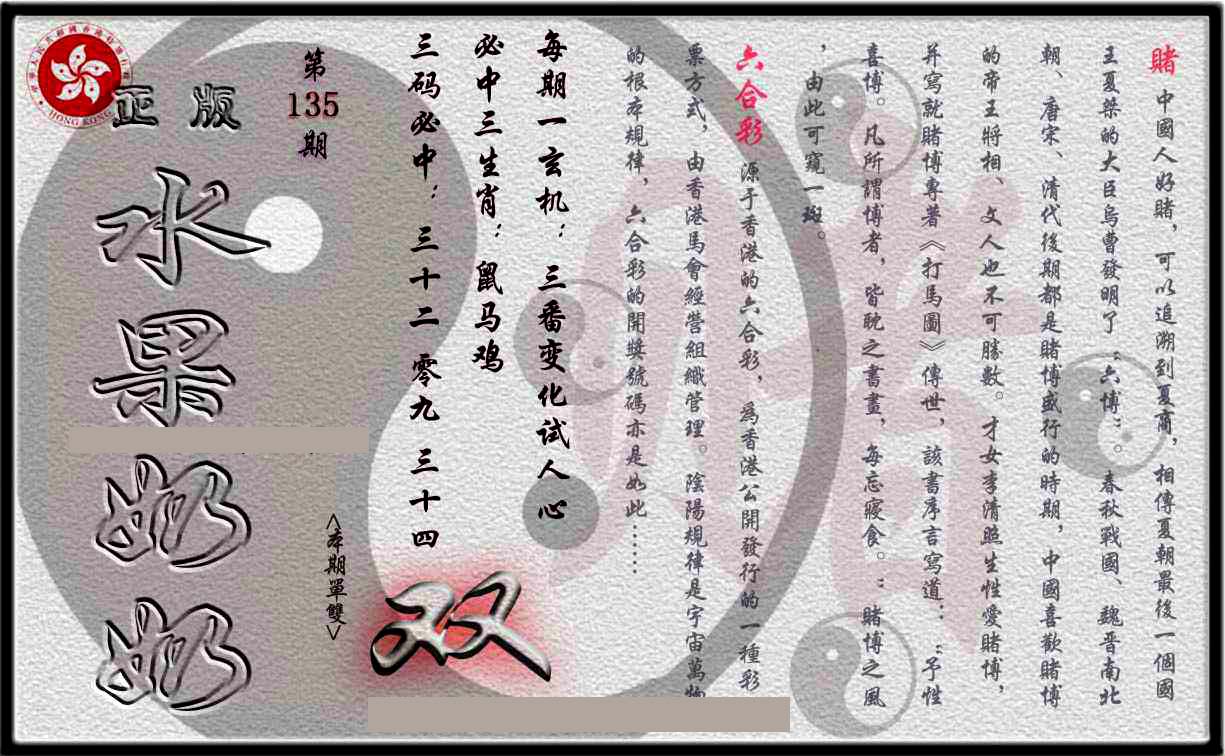 賭 中國人好賭，可以追溯到夏商，相傳夏朝最後一個國
王夏桀的大臣烏曹發明了“六博”。春秋戰國、魏晋南北
朝、唐宋、清代後期都是賭博盛行的時期，中國喜歡賭博
的帝王將相、文人也不可勝數。才女李清照生性愛賭博，
并寫就賭博專著《打馬圖》傳世，該書序言寫道：“予性
喜博。凡所謂博者，皆耽之書畫，每忘寢食。”賭博之風
，由此可窺一斑。
六合彩 源于香港的六合彩，爲香港公開發行的一種彩
票方式，由香港馬會經營組織管理。陰陽規律是宇宙萬物
的根本規律，六合彩的開獎號碼亦是如此……
每期一玄机：三番变化试人心
必中三生肖：鼠马鸡
三码必中：三十二 零九 三十四
第
135
期
<本期單雙>
双
正版
水果奶奶
HONG KONG